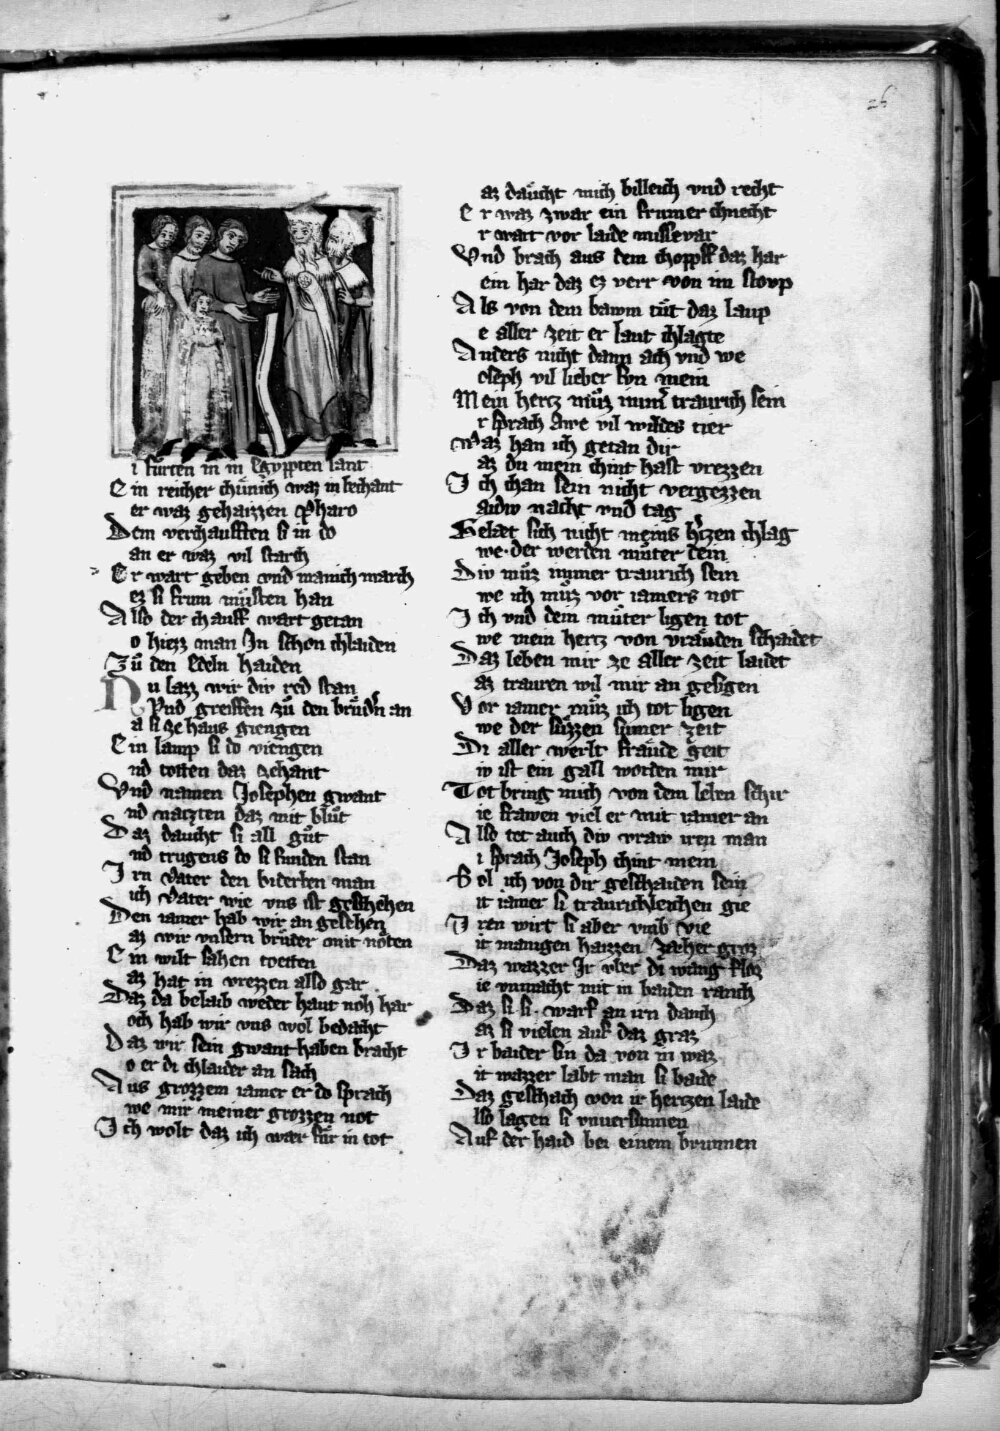 26
i fůrten in in Egyppten lant
Ein reicher chůnich waz in bechant
er waz gehaizzen Pharo
Dem verchaufften si in do
an er waz vil starch
Er wart geben vnd manich march
ez si frum můsten han
Also der chauff wart getan
o hiezz man In schon chlaiden
Zů den Edeln haiden
Nu lazz wir div red stan
Vnd greiffen zů den brůdn an
a si ze haus giengen
Ein lamp si do viengen
nd totten daz zehant
Vnd namen Josephen gwant
nd naczten daz mit blůt
Daz daucht si all gůt
nd trugens do si funden stan
Irn vater den biderben man
ich vater wie vns ist geschehen
Den iamer hab wir an gesehen
az wir vnsern brůder mit nöten
Ein wilt sahen toetten
az hat in vrezzen also gar
Daz da belaib weder haut noh har
och hab wir vns wol bedacht
Daz wir sein gwant haben bracht
o er di chlaider an sach
Aus grozzem iamer er do sprach
we mir meiner grozzen not
Ich wolt daz ich wär fůr in tot
az dåucht mich billeich vnd recht
Er waz zwar ein frumer chnecht
r wart vor laide missevar
Vnd brach aus dem choppff daz har
ein har daz ez verr von im stovp
Als von dem bawm tůt daz laup
e aller zeit er laut chlagte
Anders nicht dann ach vnd we
oseph vil lieber svn mein
Mein hercz můz immer traurich sein
r sprach awe vil wildes tier
Waz han ich getan dir
az du mein chint hast vrezzen
Ich chan sein nicht vergezzen
aidw nacht vnd tag
Gelaet sich nicht meins hertzen chlag
we der werden můter dein
Div můz immer traurich sein
we ich můz vor iamers not
Ich vnd dein můter ligen tot
we mein hertz von vräuden schaidet
Daz leben mir ze aller zeit laidet
az trauren wil mir an gesigen
Vor iamer můz ich tot ligen
we der sůzzen sumer zeit
Di aller werlt fräude geit
iv ist ein gall worden mir
Tot bring mich von dem leben schir
ie frawen viel er mit iamer an
Also tet auch div vraw iren man
i sprach Joseph chint mein
Sol ich von dir geschaiden sein
it iamer si traurichleichen gie
Iren wirt si aber vmb vie
it manigen haizzen zaeher groz
Daz wazzer Ir vber di wang floz
ie vnmacht mit in baiden ranch
Daz si si warf an irn danch
az si vielen auf daz graz
Ir baider sin da von in waz
it wazzer labt man si baide
Daz geschach von ir hertzen laide
lso lagen si vnuersunnen
Auf der haid bei einem brunnen